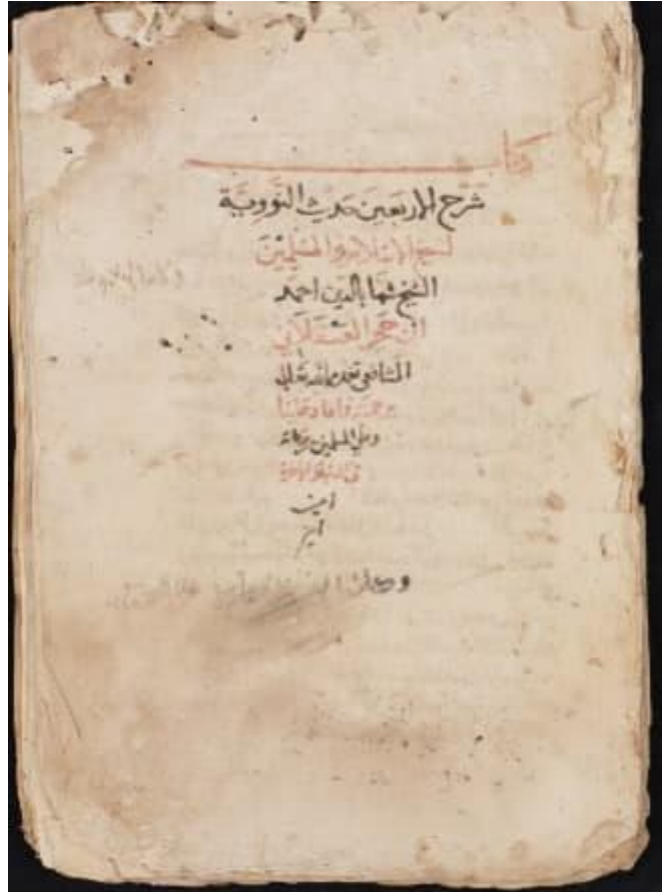 كتاب
شرح الاربعين حديث النووية
لشيخ الاسلام والمسلمين
الشيخ شهاب الدين احمد
ابن حجر العسقلاني
الشافعي تغمده الله تعالى
برحمته واعاد علينا
وعلى المسلمين بركاته
في الدنيا والاخرة
امين
امين